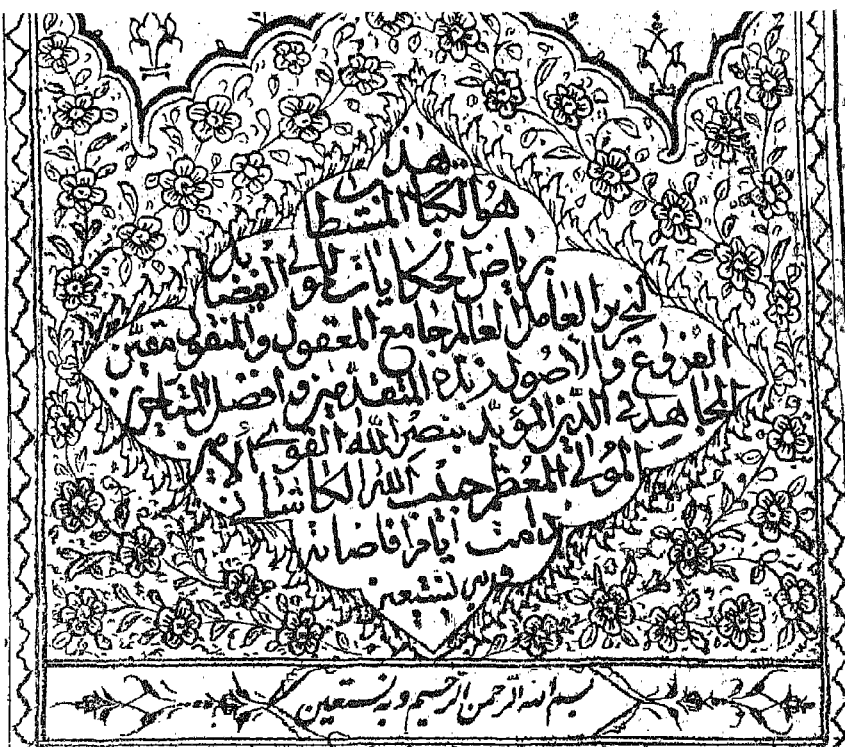 هذا
هو الكتاب المستطاب
رياض الحكايات لمولى الفضايل
النحرير العامل العالم جامع المعقول والمنقول مقنن
الفروع والأصول زبدة المتقدمين وافضل المتأخرين
المجاهد في الدين المؤيد بنصر الله القوي الأمين
المولى المعظم حبيب الله الكاشاني
دامت أيام افاضاته
وبه نستعين
بسم الله الرحمن الرحيم وبه نستعين